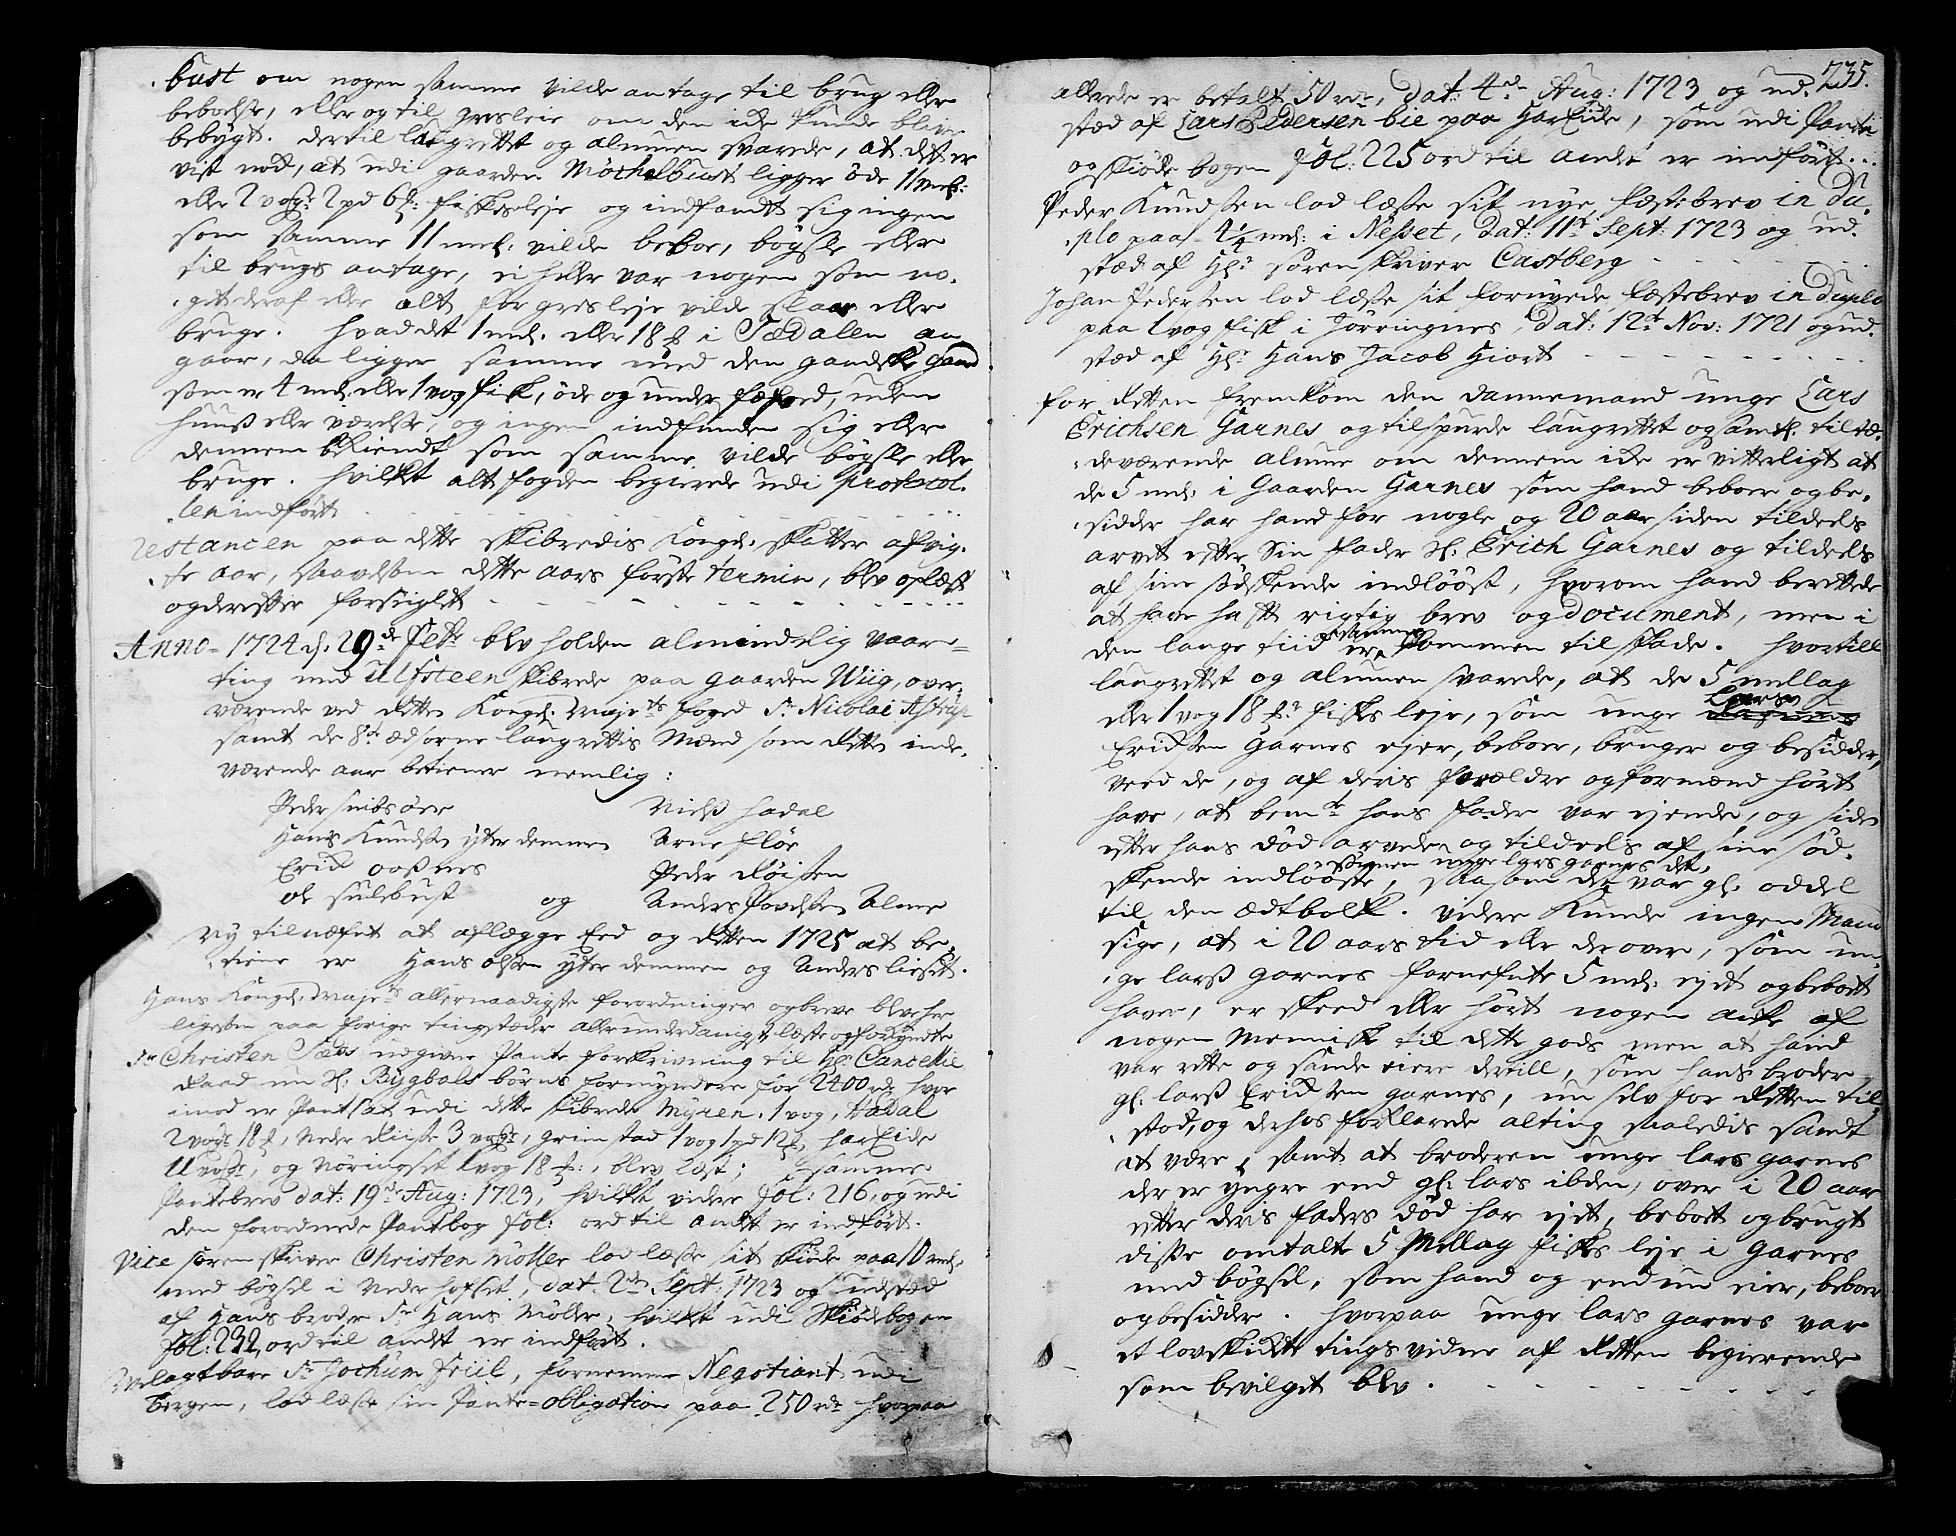 bust om nogen samme vilde antage til brug eller
beboelse, eller og til gresleie om den icke kunde blive
bebygt. dertil laugrettet og almuen svarede, at det er
vist nock, at udi gaarden Møchelbust ligger øde 11 mel:
eller 2 voger 2 pd 6 : fiskeleje og indfandt sig ingen
som samme 11 mel: vilde beboe, bøgsle eller
til brugs antage, ei heller var nogen som no-
get deraf eller alt for gresleje vilde slaae eller
bruge. hvad det 1 mel. eller 18 i Sædalen an
gaar, da ligger samme med den gandske gaard
som er 4 mel. eller 1 vog fisk, øde og under fæfoed, uden
huuss eller værelse, og ingen indfunden sig eller
dennem bekiendt som samme vilde bøgsle eller
bruge. hvilket alt fogden begierede udi protocol-
len indført
restancen paa dette skibredis kongl. skatter afvig-
te aar, saavelsom dette aars første termin, blev oplæst
og derefter forseiglet
Anno 1724 d. 29de blev holden almindelig vaar-
ting med Ulfsteen skibrede paa gaarden Wiig, over-
værende ved Retten Kongl. Mayets foged Sr Nicolai Astrup
samt de 8te ædsorne laugrettis Mænd som Retten inde-
værende aar betiener nemlig:
Peder
Hans Knudsen ytterdemmen
Erick
ole sulebust og
Nielss hadal
Arne fløe
Peder
Anders Povelsen Alme
Ny tilnæfnt at aflægge Eed og Retten 1725 at be-
tiene er Hans olsen ytterdemmen og Anders lieset.
Hans Kongl. Mayets allernaadigste forordninger og breve bleve her
ligesom paa forrige tingstæder allerunderdanigst læste og forkyndte
Sr Christen udgivne Pante forskrivning til Hr Cancellie
Raad nu Sl. Bygbals børns formyndere for 2400 rdr hvor
imod er Pantsat udi dette skibrede Myren 1 vog, Hadal
2 voger 18 , Nedre 3 voger, grimstad 1 vog 1 pd 12 , hareide
og Nøringset 1 vog 18 :, blev læst; samme
Pantebrev dat: 19de Aug: 1723, hvilket videre Fol: 216, og udi
den forordnede Pantbog fol: ord til andet er indført.
Vice sorenskriver Christen Møller lod læse sit skiøde paa 10 mel.
med bøgsel i Nedre , dat. 2den Sept: 1723 og udstæd
af Hans broder Sr Hans Møller, hvilket udi Skiødebogen
fol: 232, ord til andet er indført.
Velagtbare Sr Jochum Friil, fornemme Negotiant udi
bergen, lod læse sin Pante-obligation paa 250 rdr hvorpaa
235.
allerede er betalt 50 rdr, dat: 4de Aug: 1723 og ud-
stæd af Lars Pedersen bie paa Hareide, som udi Pante
og skiøde bogen Fol: 225 ord til andet er indført...
Peder Knudsen lod læse sit nye fæstebrev in du-
plo paa 4 1/4 mel: i Nesset, dat: 11te Sept: 1723 og ud-
stæd af Hr sorenskriver Castberg
Johan Pedersen lod læse sit fornyede fæstebrev in duplo
paa 1 vog fisk i Jørringnes, dat: 12te Nov: 1721 og ud-
stæd af Hr Hans Jacob Hiort
for Retten fremkom den dannemand unge Lars
Erichsen Garnes og tilspurde laugrettet og samtl. tilstæ-
deværende almue om dennem icke er vitterligt at
de 5 mel: i Gaarden Garnes som hand beboer og be-
sidder har hand for nogle og 20 aar siden tildeels
arvet efter Sin fader Sl: Erich Garnes og tildeels
af sine sødskende indløöst, hvorom hand berettede
at have hafft rigtig brev og document, men i
den lange tiid er kommen til skade. hvortill
laugrettet og almuen svarede, at de 5 mellag
eller 1 vog 18 fiske leje, som unge Lars
Ericksen Garnes ejer, beboer, bruger og besidder,
veed de, og af deris forældre og formænd hørt
have, at bemte hans fader var ejende, og siden
efter hans død arvede og tildeels af sine sød-
unge lars garnes det,
skende indløöste, saasom det var gl. oddel
til den ædtbolk. videre kunde ingen Mand
sige, at i 20 aars tid eller derover, som un-
ge larss garnes fornefnte 5 mel. ejet og beboet
haver, er skeed eller hørt nogen anke af
nogen Mennisk til dette gods men at hand
var rette og sande eiere dertill, som hans broder
gl. larss Ericksen garnes, nu selv for Retten til-
stod, og derhos forklarede alting saaledis sandt
at være, samt at broderen unge lars garnes
der er yngre end gl: lars ibden, over i 20 aar
efter deris faders død har ejet, beboet og brugt
disse omtalte 5 Mellag fiske leje i Garnes
med bøgsel, som hand og endnu eier, beboer
og besidder. hvorpaa unge lars garnes var
et lovskicket tings vidne af Retten begierende
som bevilget blev.